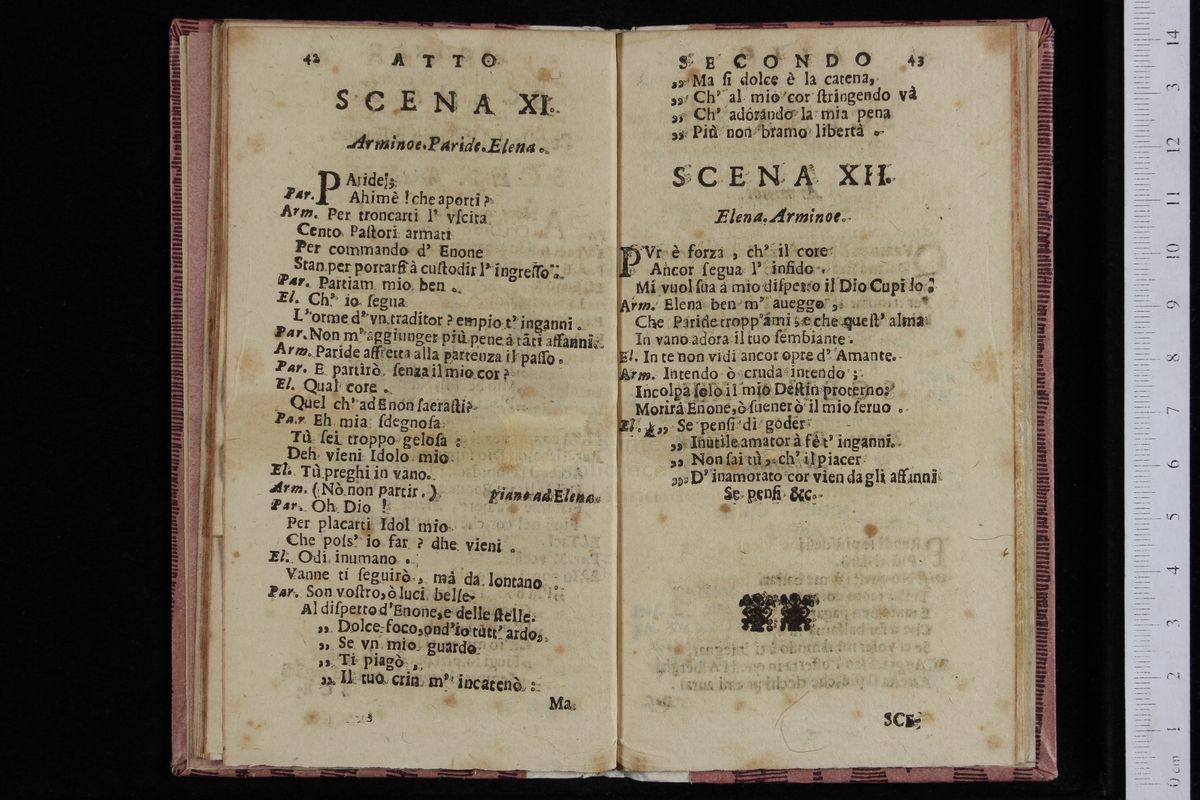 42 ATTO
SCENA XI.
Arminoe. Paride. Elena.
PAride!
Par. Ahimè ! che aporti ?
Arm. Per troncarti l' vſcita
Cento Paſtori armati
Per commando d' Enone
Stan per portarſi à cuſtodir l' ingreſſo.
Par. Partiam mio ben.
El. Ch' io ſegua
L'orme d' vn traditor ? empio t' inganni.
Par. Non m' aggiunger più pene à tãti affanni.
Arm. Paride affretta alla partenza il paſſo.
Par. E partirò ſenza il mio cor ?
El. Qual core.
Quel ch' ad Enon ſacraſti?
Par Eh mia ſdegnoſa
Tù ſei troppo geloſa :
Deh vieni Idolo mio
El. Tù preghi in vano.
Arm. (Nò non partir.) piano ad Elena.
Par. Oh Dio !
Per placarti Idol mio
Che poſs' io far ? dhe vieni.
El. Odi inumano.
Vanne ti ſeguirò, mà da lontano
Par. Son voſtro, ò luci belle
Al diſpetto d'Enone, e delle ſtelle.
„ Dolce foco, ond'io tutt' ardo,
„ Se vn mio guardo
„ Ti piagò,
„ Il tuo crin m' incatenò :
Ma
SECONDO 43
„ Ma ſi dolce è la catena,
„ Ch' al mio cor ſtringendo và
„ Ch' adorando la mia pena
„ Più non bramo libertà.
SCENA XII.
Elena. Arminoe.
PVr è forza, ch' il core
Ancor ſegua l' infido.
Mi vuol ſua à mio diſpetto il Dio Cupi lo.
Arm. Elena ben m' aueggo,
Che Paride tropp'ami, e che queſt' alma
In vano adora il tuo ſembiante.
El. In te non vidi ancor opre d' Amante.
Arm. Intendo ò cruda intendo ;
Incolpa ſolo il mio Deſtin proteruo:
Morirà Enone, ò ſuenerò il mio ſeruo.
El. „ Se penſi di goder
„ Inutile amator à fè t' inganni.
„ Non ſai tù, ch' il piacer
„ D' inamorato cor vien da gli affanni
Se penſi &c.
SCE